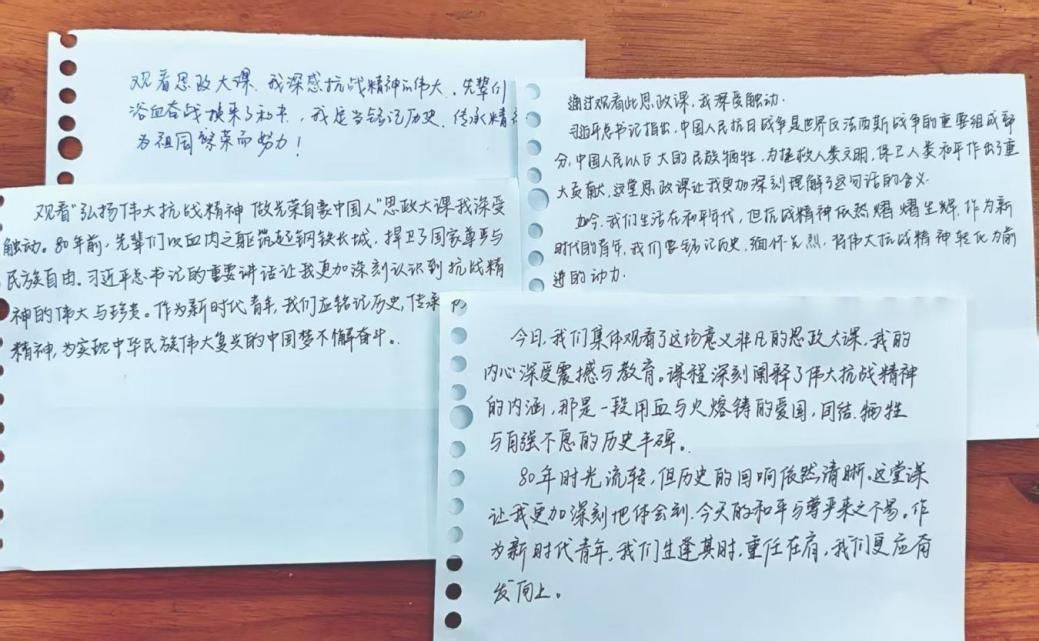 观看思政大课,我深感抗战精神的伟大。先辈们
浴血奋战换来了和平,我是当铭记历史,传承精
为祖国繁荣而努力!
观看“弘扬伟大抗战精神 做光荣自豪中国人”思政大课,我深受
触动。80年前,先辈们以血肉之躯筑起钢铁长城,捍卫了国家尊严与
民族自由。习近平总书记的重要讲话让我更加深刻认识到抗战精
神的伟大与珍贵。作为新时代青年,我们应铭记历史,传承
精神,为实现中华民族伟大复兴的中国梦不懈奋斗。
通过观看此思政课,我深受触动.
习近平总书记指出,中国人民抗日战争是世界反法西斯战争的重要组成部
分,中国人民以巨大的民族牺牲,为拯救人类文明,保卫人类和平作出了重
大贡献,这堂思政课让我更加深刻理解了这句话的含义.
如今,我们生活在和平年代,但抗战精神依然熠熠生辉,作为新
时代的青年,我们要铭记历史,缅怀先烈,将伟大抗战精神转化为前
进的动力.
今日,我们集体观看了这场意义非凡的思政大课,我的
内心深受震撼与教育。课程深刻阐释了伟大抗战精神
的内涵,那是一段用血与火熔铸的爱国,团结.牺牲
与自强不息的历史丰碑。
80年时光流转,但历史的回响依然清晰。这堂课
让我更加深刻地体会到,今天的和平与尊严来之不易。作
为新时代青年,我们生逢其时,重任在肩,我们更应奋
发向上。